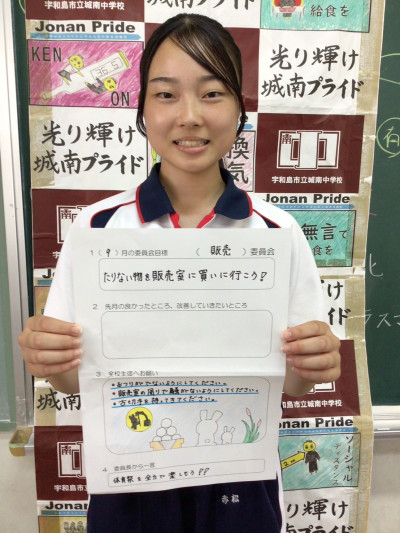 宇和島市立城南中学校
Jonan Pride
給食を
KEN
36.5
ON
光り輝け
城南プライド
光り輝け
城南プライド
換気
南中
宇和島市立城南中学校
Jonan Pride
無言で
1（ 9 ）月の委員会目標 （ 販売 ）委員会
たりない物を販売室に買いに行こう!
2 先月の良かったところ、改善していきたいところ
3 全校生徒へお願い
・おつりがでないようにしてください。
・販売室の周りで騒がないようにしてください。
4 委員長から一言
体育祭を全力で楽しもう!!
赤松
ソーシャル
ディスタンス
光り輝け
城南プライド
宇和島市立城南中学校
Jonan Pride
光り輝け
城南プライド